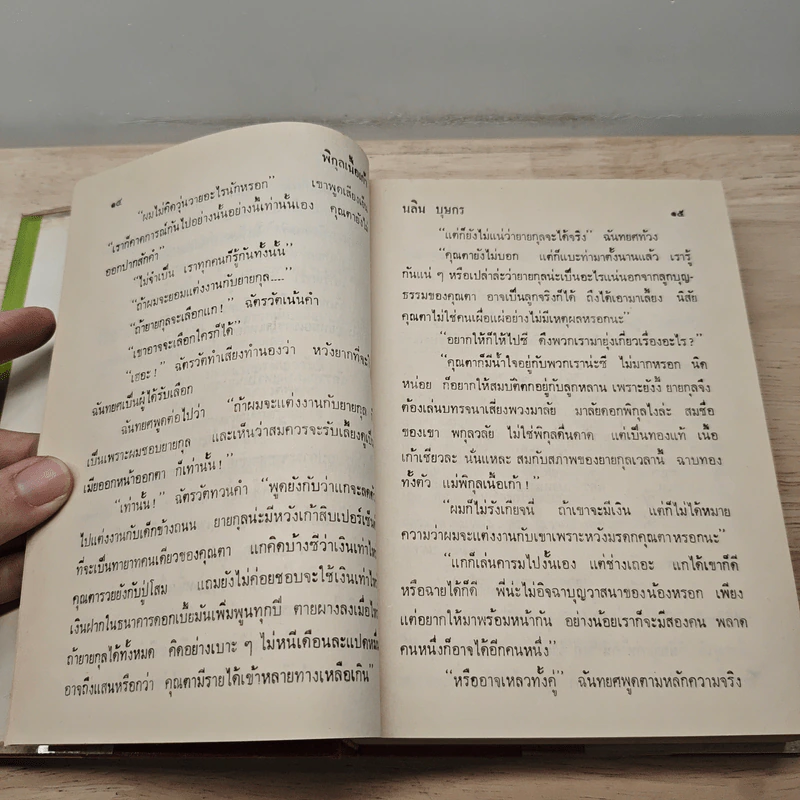 ๑๔ พิกุลเนื้อเก้า
"ผมไม่คิดวุ่นวายอะไรนักหรอก" เขาพูดเลี่ยงเสีย
"เราก็คาดการณ์กันไปอย่างนั้นอย่างนี้เท่านั้นเอง คุณตายังไม่
ออกปากสักคำ"
"ไม่จำเป็น เราทุกคนก็รู้กันทั้งนั้น"
"ถ้าผมจะยอมแต่งงานกับยายกุล....."
"ถ้ายายกุลจะเลือกแก!" ฉัตรวัตเน้นคำ
"เขาอาจจะเลือกใครก็ได้"
"เฮอะ!" ฉัตรวัตทำเสียงทำนองว่า หวังยากที่จะ
ฉันทยศเป็นผู้ได้รับเลือก
ฉันทยศพูดต่อไปว่า "ถ้าผมจะแต่งงานกับยายกุล
เป็นเพราะผมชอบยายกุล และเห็นว่าสมควรจะรับเลี้ยงดูเป็น
เมียออกหน้าออกตา ก็เท่านั้น!"
"เท่านั้น!" ฉัตรวัตทวนคำ "พูดยังกับว่าแกจะลดตัว
ไปแต่งงานกับเด็กข้างถนน ยายกุลน่ะมีหวังเก้าสิบเปอร์เซ็นต์
ที่จะเป็นทายาทคนเดียวของคุณตา แกคิดบ้างซีว่าเงินเท่าไหร่
คุณตารวยยังกับปู่โสม แถมยังไม่ค่อยชอบจะใช้เงินเท่าไหร่
เงินฝากในธนาคารดอกเบี้ยมันเพิ่มพูนทุกปี ตายผางลงเมื่อไหร่
ถ้ายายกุลได้ทั้งหมด คิดอย่างเบาะ ๆ ไม่หนีเดือนละแปดหมื่น
อาจถึงแสนหรือกว่า คุณตามีรายได้เข้าหลายทางเหลือเกิน"
นลิน บุษกร ๑๕
"แต่ก็ยังไม่แน่ว่ายายกุลจะได้จริง" ฉันทยศท้วง
"คุณตายังไม่บอก แต่ก็แบะท่ามาตั้งนานแล้ว เรารู้
กันแน่ ๆ หรือเปล่าล่ะว่ายายกุลน่ะเป็นอะไรแน่นอกจากลูกบุญ-
ธรรมของคุณตา อาจเป็นลูกจริงก็ได้ ถึงได้เอามาเลี้ยง นิสัย
คุณตาไม่ใช่คนเผื่อแผ่อย่างไม่มีเหตุผลหรอกนะ"
"อยากให้ก็ให้ไปซี ดึงพวกเรามายุ่งเกี่ยวเรื่องอะไร?"
"คุณตาก็มีน้ำใจอยู่กับพวกเราน่ะซี ไม่มากหรอก นิด
หน่อย ก็อยากให้สมบัติตกอยู่กับลูกหลาน เพราะยังงี้ ยายกุลจึง
ต้องเล่นบทรจนาเสี่ยงพวงมาลัย มาลัยดอกพิกุลไงล่ะ สมชื่อ
ของเขา พกุลวลัย ไม่ใช่พิกุลดื่นดาด แต่เป็นทองแท้ เนื้อ
เก้าเชียวละ นั่นแหละ สมกับสภาพของยายกุลเวลานี้ ฉาบทอง
ทั้งตัว แม่พิกุลเนื้อเก้า!"
"ผมก็ไม่รังเกียจนี่ ถ้าเขาจะมีเงิน แต่ก็ไม่ได้หมาย
ความว่าผมจะแต่งงานกับเขาเพราะหวังมรดกคุณตาหรอกนะ"
"แกก็เล่นคารมไปงั้นเอง แต่ช่างเถอะ แกได้เขาก็ดี
หรือฉายได้ก็ดี พี่น่ะไม่อิจฉาบุญวาสนาของน้องหรอก เพียง
แต่อยากให้มาพร้อมหน้ากัน อย่างน้อยเราก็จะมีสองคน พลาด
คนหนึ่งก็อาจได้อีกคนหนึ่ง"
"หรืออาจเหลวทั้งคู่" ฉันทยศพูดตามหลักความจริง